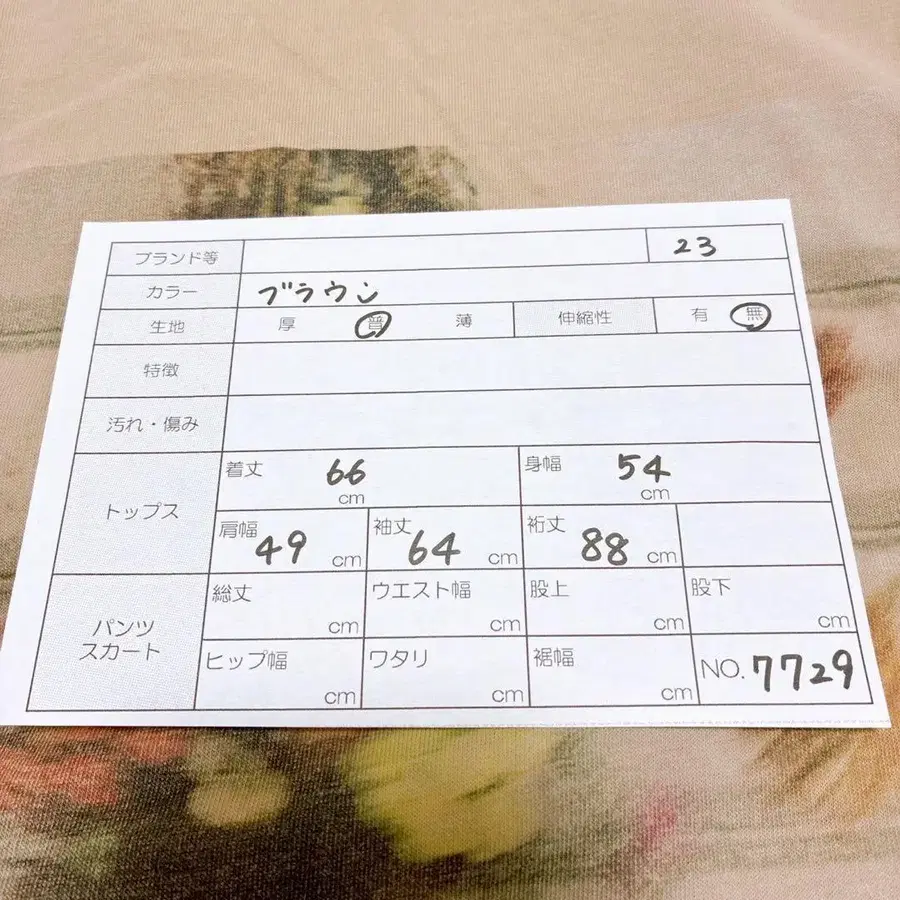 ブランド等 23
カラー ブラウン
生地 厚 普 薄 伸縮性 有 無
特徴
汚れ・傷み
トップス
着丈 66 cm 身幅 54 cm
肩幅 49 cm 袖丈 64 cm 裄丈 88 cm
パンツ
スカート
総丈 cm ウエスト幅 cm 股上 cm 股下 cm
ヒップ幅 cm ワタリ cm 裾幅 cm NO. 7729